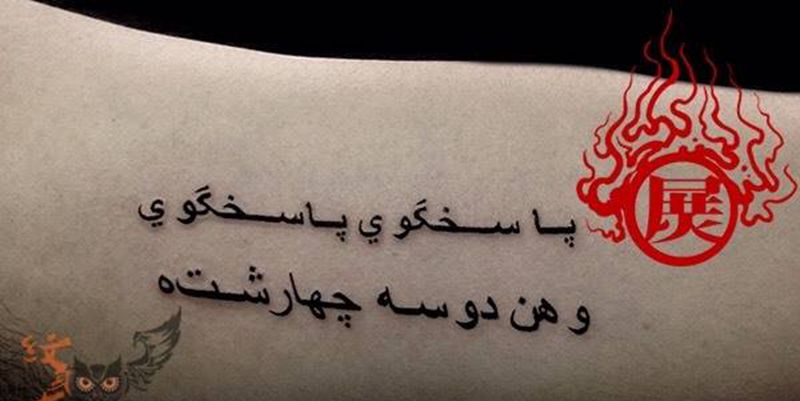 پا سخگو ي پاسخگو ي
و هن دو سه چهارشته